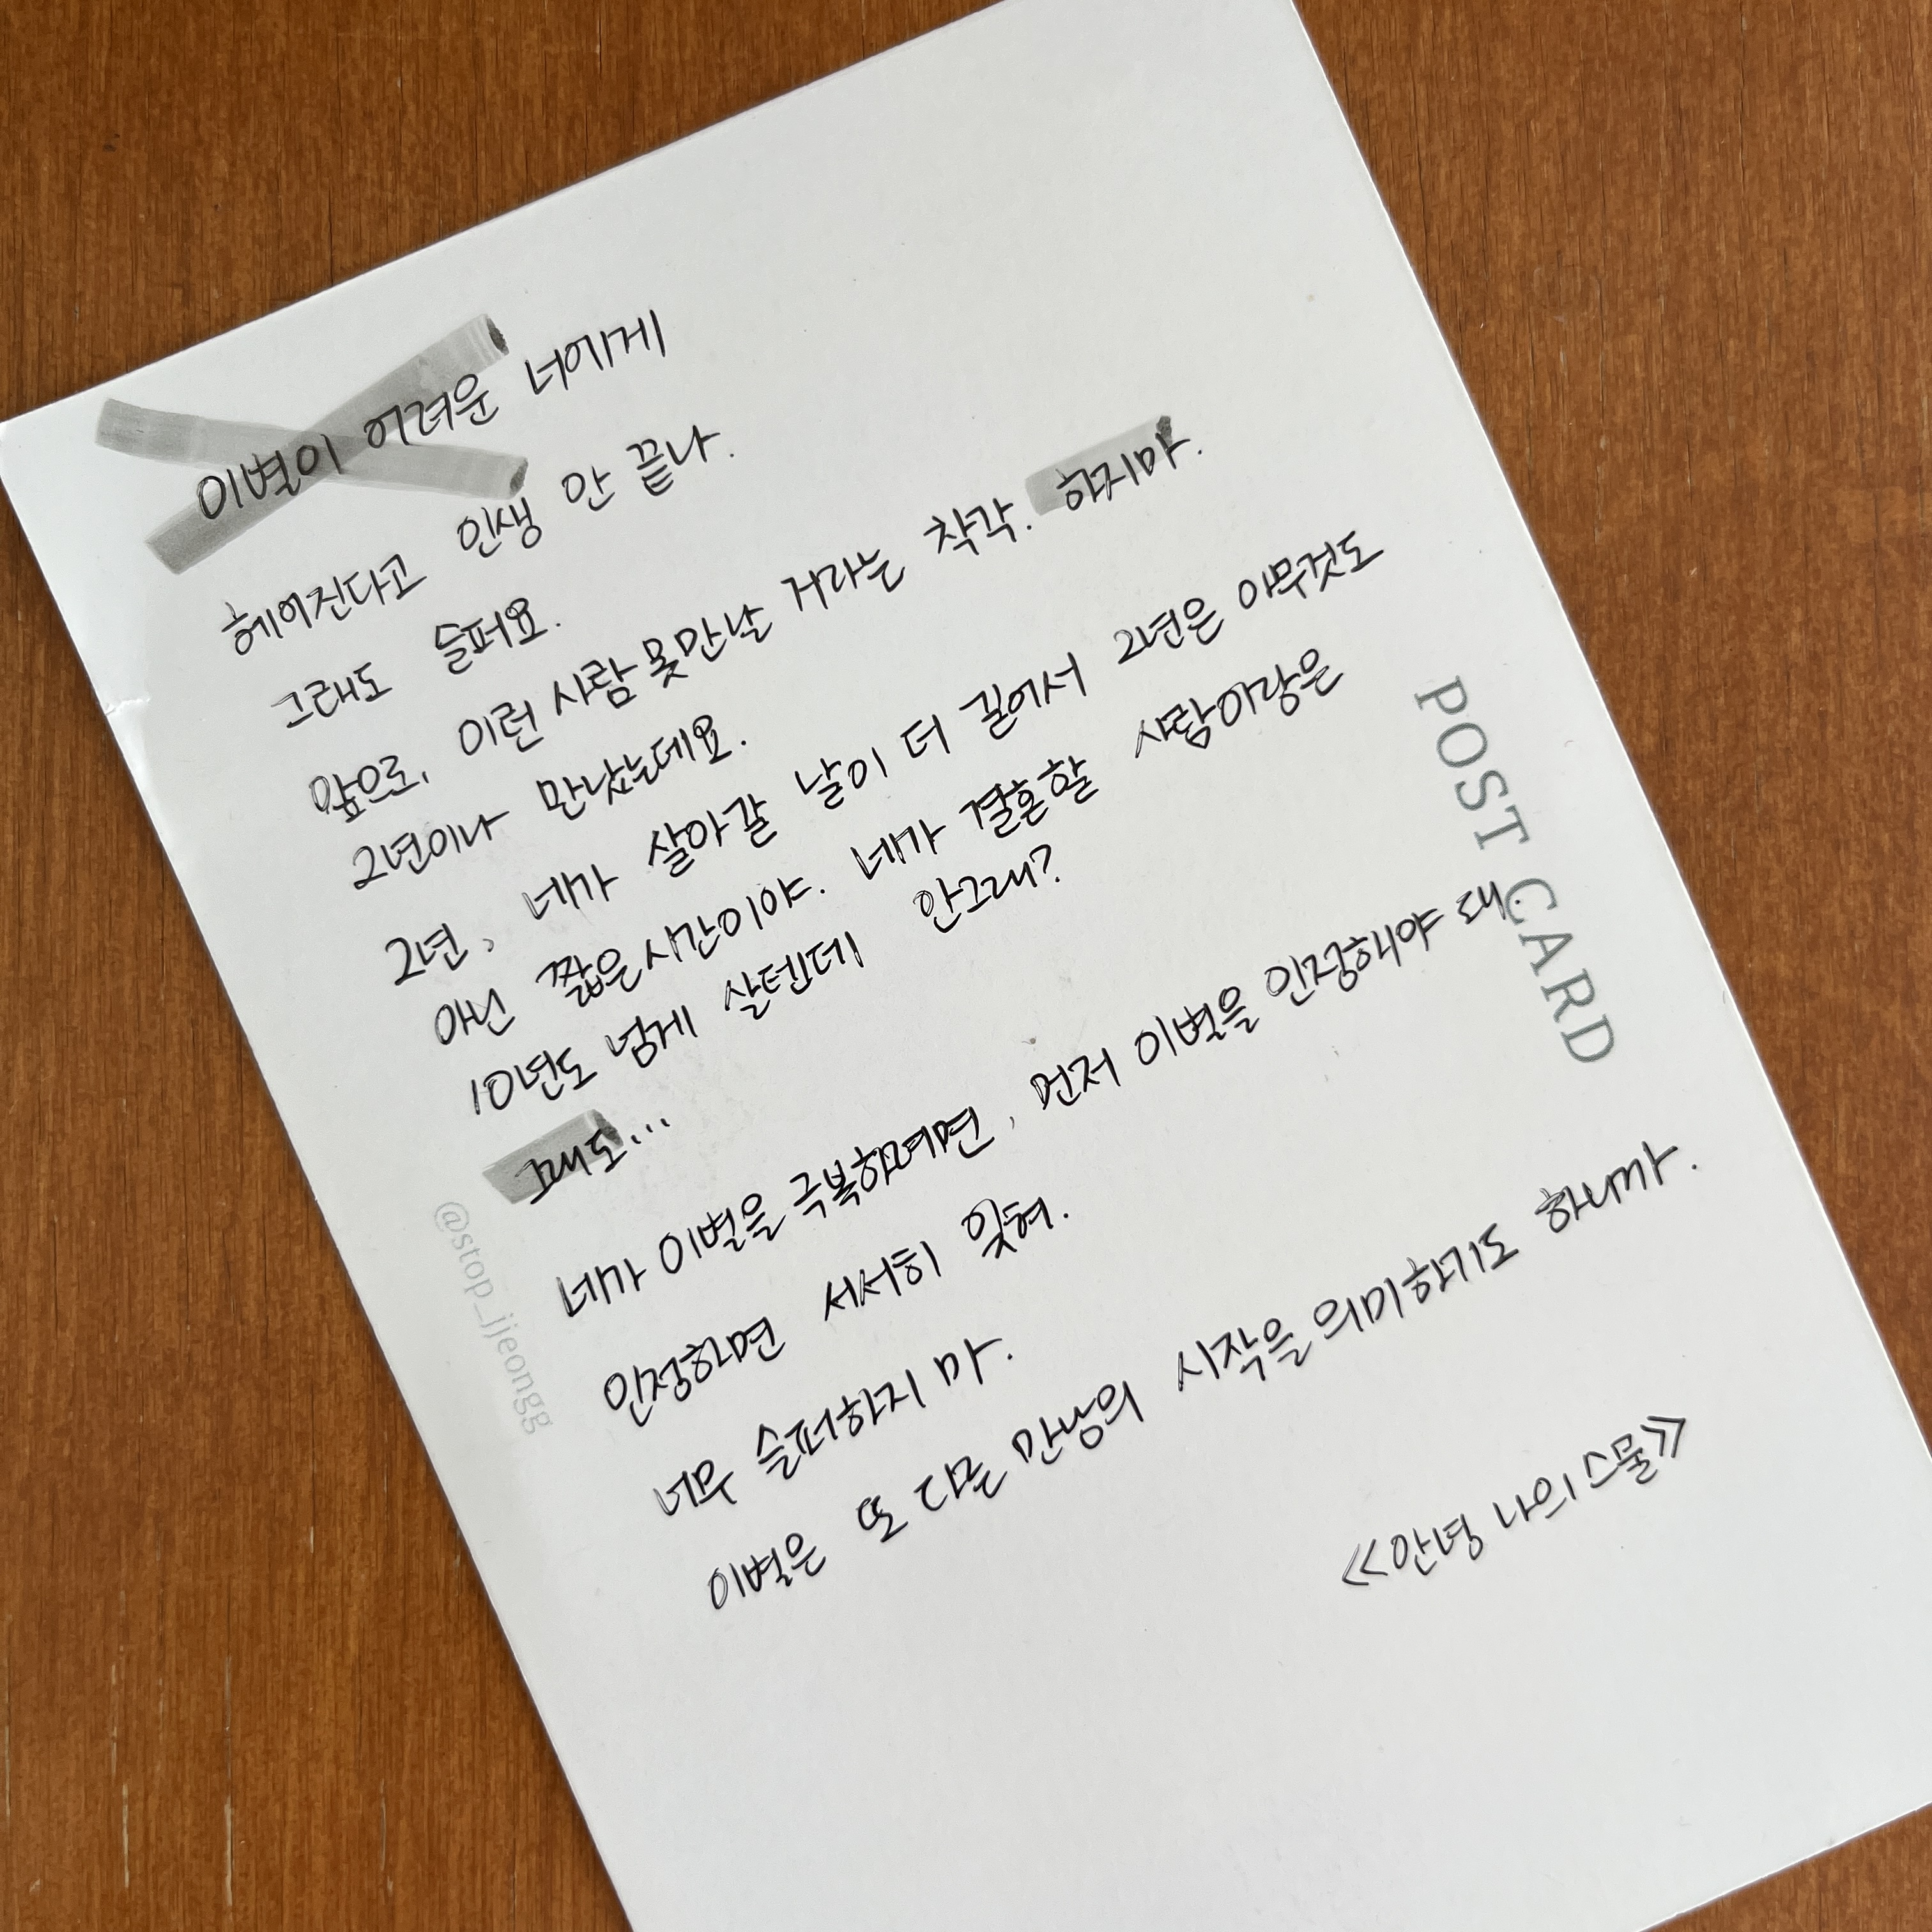 이별이 어려운 너에게
헤어진다고 인생 안 끝나.
그래도 슬퍼요.
앞으로, 이런 사람 못 만날 거라는 착각. 하지마.
2년이나 만났는데요.
2년, 네가 살아갈 날이 더 길어서 2년은 아무것도
아닌 짧은 시간이야. 네가 결혼할 사람이랑은
10년도 넘게 살텐데 안그래?
그래도...
네가 이별을 극복하려면, 먼저 이별을 인정해야 돼.
인정하면 서서히 잊혀.
너무 슬퍼하지 마.
이별은 또 다른 만남의 시작을 의미하기도 하니까.
<<안녕 나의 스물>>
POST CARD
@stop_ijeongg